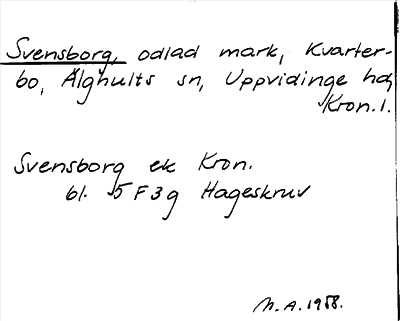 Svensborg, odlad mark, Kvarter-
bo, Älghults sn, Uppvidinge hd,
Kron. l.
Svensborg ek Kron.
bl. 5F3g Hageskruv
M. A. 1958.